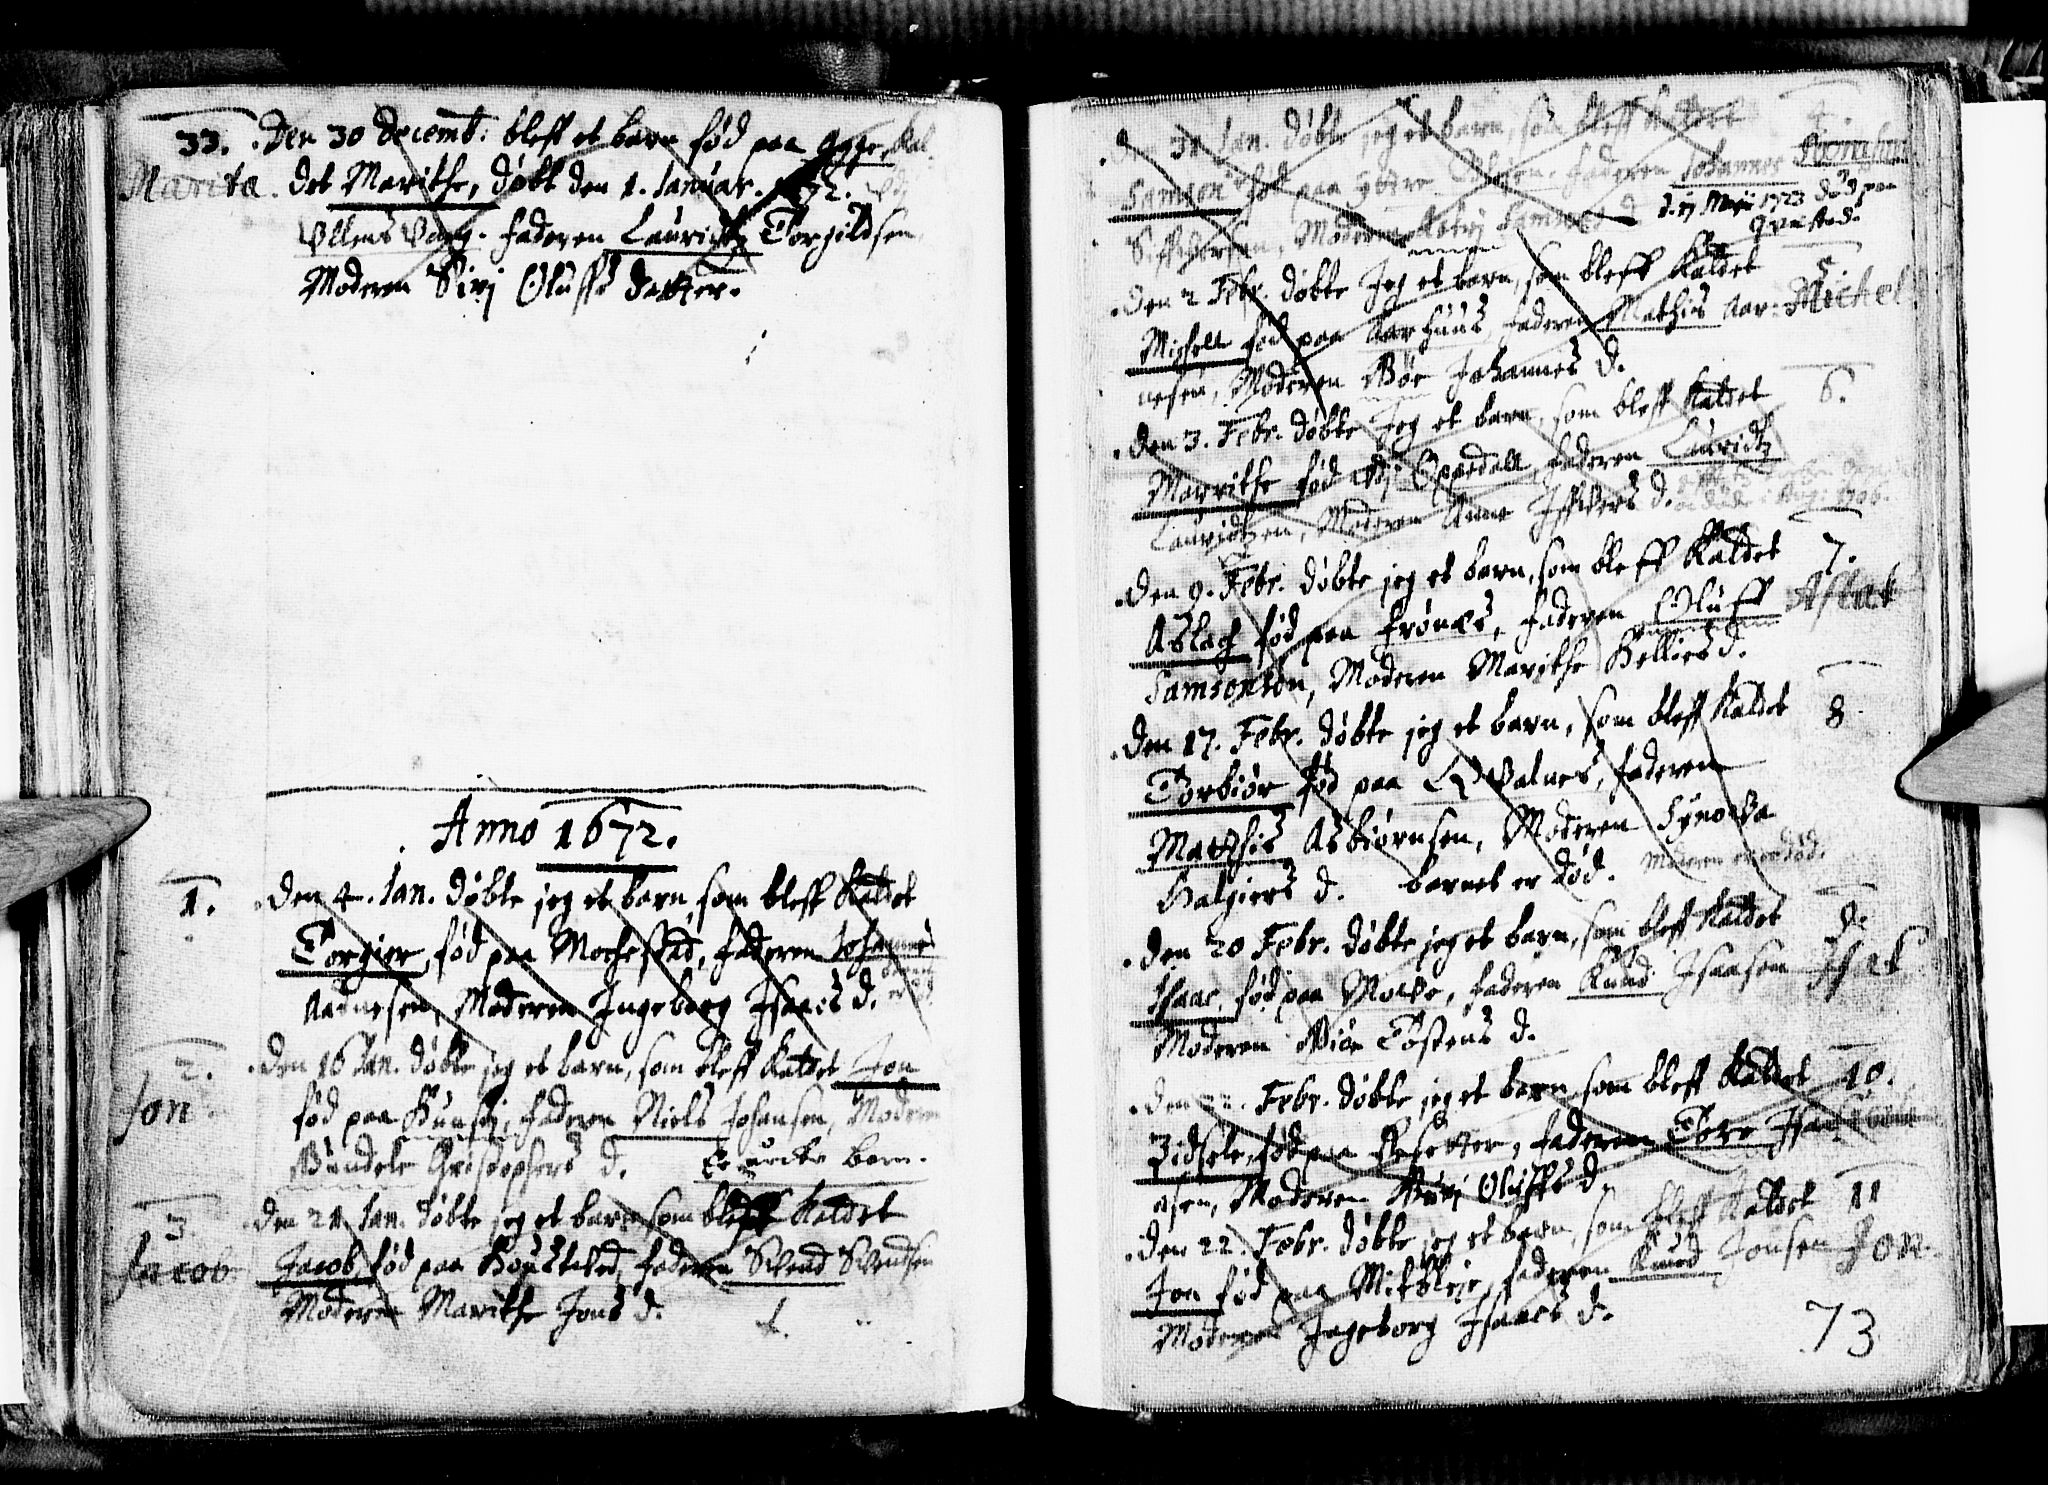 33. Den 30 Decemb: bleff et barn fød paa Aga, Kal-
Marita. det Marithe, døbt den 1. Ianuar. 1672. 
Ullens Vang. Faderen Lauridtz Torgildsen
Moderen Sivj Oluffs datter.
Anno 1672.
1. Den 4. Ian. døbte jeg et barn, som bleff Kaldet
Torgier, fød paa Mochestad, Faderen Iohannes
Aadnesen, Moderen Ingeborg Isaacs d.
2. Den 16 Ian. døbte jeg et barn, som bleff Kaldet Jon
Jon. fød paa Hunsej, Faderen Niels Johansen, Moderen
Christophers d. barn.
3 Den 21 Ian. døbte jeg et barn som bleff Kaldet
Jacob. Jacob, fød paa Houstved, Faderen Svend Svendsen
Moderen Marithe Jons d.
4. Den 31 Ian. døbte jeg et barn, som bleff Kaldet
Samson fød paa Faderen Iohannes
Siffversen, Moderen Samsens d d. Maji 1723 død paa
5 Den 2 Febr. døbte Jeg et barn, som bleff Kaldet
Michel Michell fød paa Aarhuus, Faderen Mathis Aar-
nesen, Moderen Johannes d.
6. Den 3. Febr. døbte Jeg et barn, som bleff Kaldet
Marithe fød Vdj Oppedall, Faderen Lauridtz
Lauridtzen, Moderen Anne Iffvers d.
7. Den 9. Febr. døbte jeg et barn, som bleff Kaldet
Aslak Aslach fød paa Frønæs, Faderen Oluff
Samsonsøn, Moderen Marithe Hellies d.
8 Den 17. Febr. døbte jeg et barn, som bleff Kaldet
Torbiør fød paa Qvalnes, Faderen
Mathis Asbiørnsen, Moderen Synneva
Halgiers d. barnet er død. Moderen er død.
9. Den 20 Febr. døbte jeg et barn, som bleff Kaldet
Isak Isaac, fød paa Faderen Knud Isaasøn
Moderen Tostens d.
10. Den 22. Febr. døbte jeg et barn som bleff Kaldet
Zidsele, fød paa Faderen Tore
Moderen Oluffs d.
11 Den 22. Febr. døbte jeg et barn, som bleff Kaldet
Jon. Jon fød paa Faderen Knud Jonsen
Moderen Ingeborg Isaacs d.
73